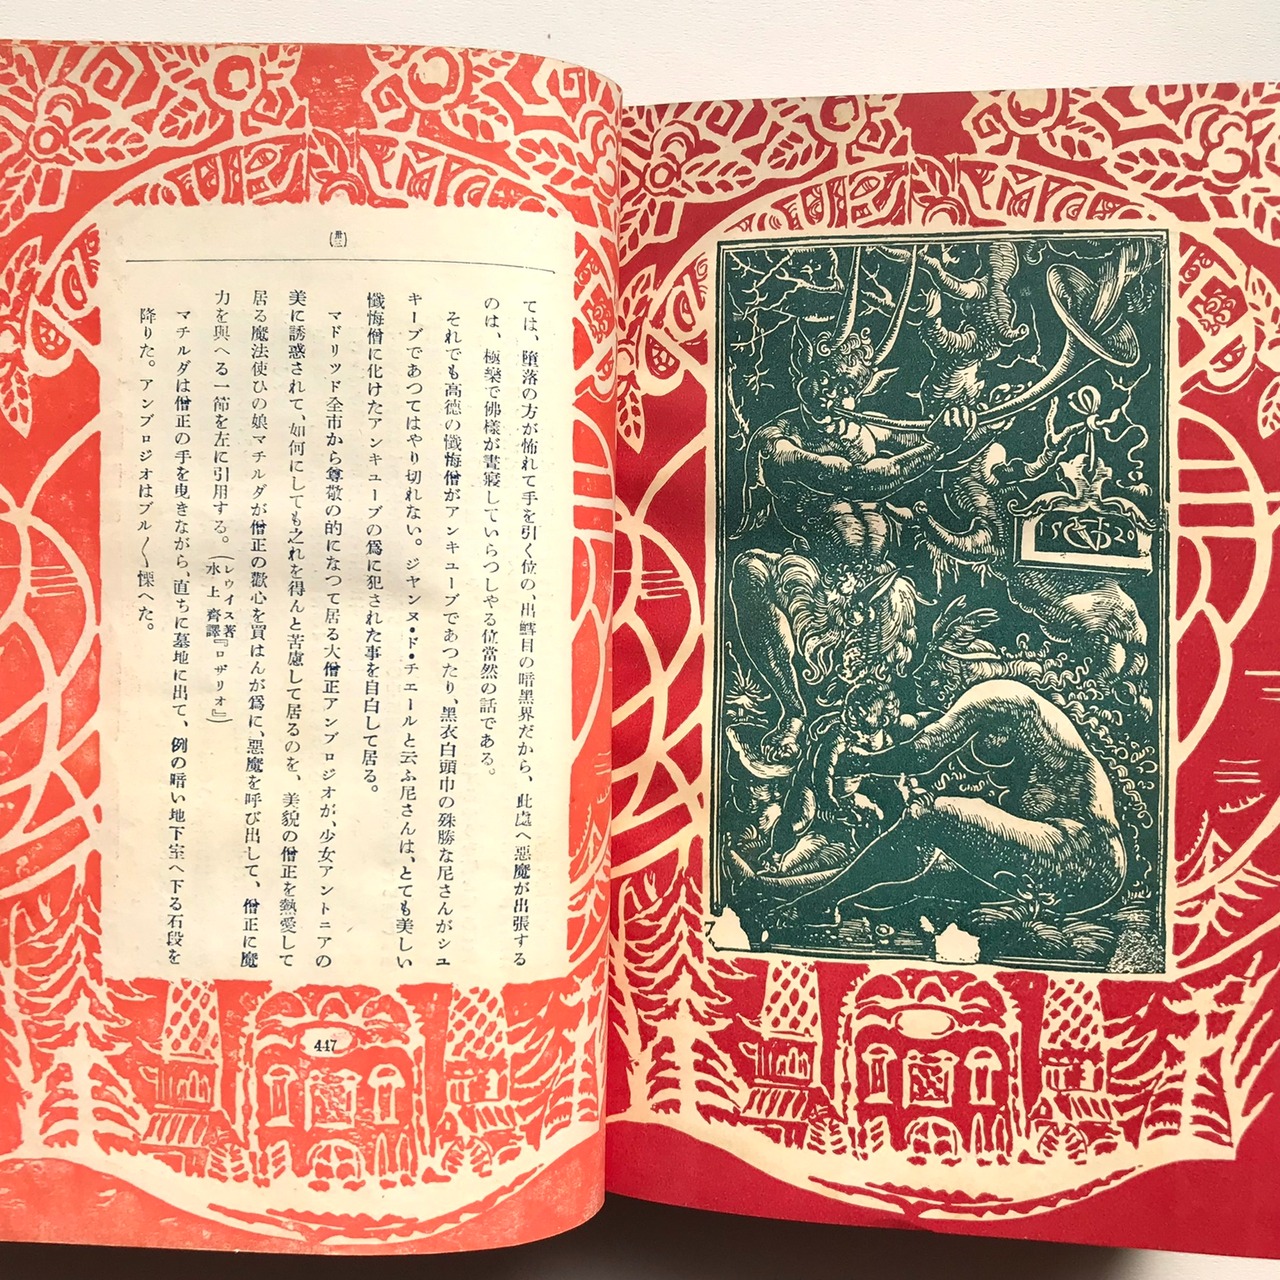 (卅三)
ては、墮落の方が怖れて手を引く位の、出鱈目の暗黑界だから、此處へ惡魔が出張する
のは、極樂で佛樣が晝寢していらつしやる位當然の話である。
それでも高德の懺悔僧がアンキューブであつたり、黑衣白頭巾の殊勝な尼さんがシュ
キーブであつてはやり切れない。ジヤンヌ•ド•チエールと云ふ尼さんは、とても美しい
懺悔僧に化けたアンキューブの爲に犯された事を自白して居る。
マドリツド全市から尊敬の的になつて居る大僧正アンブロジオが、少女アントニアの
美に誘惑されて、如何にしても之れを得んと苦慮して居るのを、美貌の僧正を熱愛して
居る魔法使ひの娘マチルダが僧正の歡心を買はんが爲に、惡魔を呼び出して、僧正に魔
力を與へる一節を左に引用する。(レウイス著 水上齊譯『ロザリオ』)
マチルダは僧正の手を曳きながら、直ちに墓地に出て、例の暗い地下室へ下る石段を
降りた。アンブロジオはブル〱慄へた。
447
15 GV 20